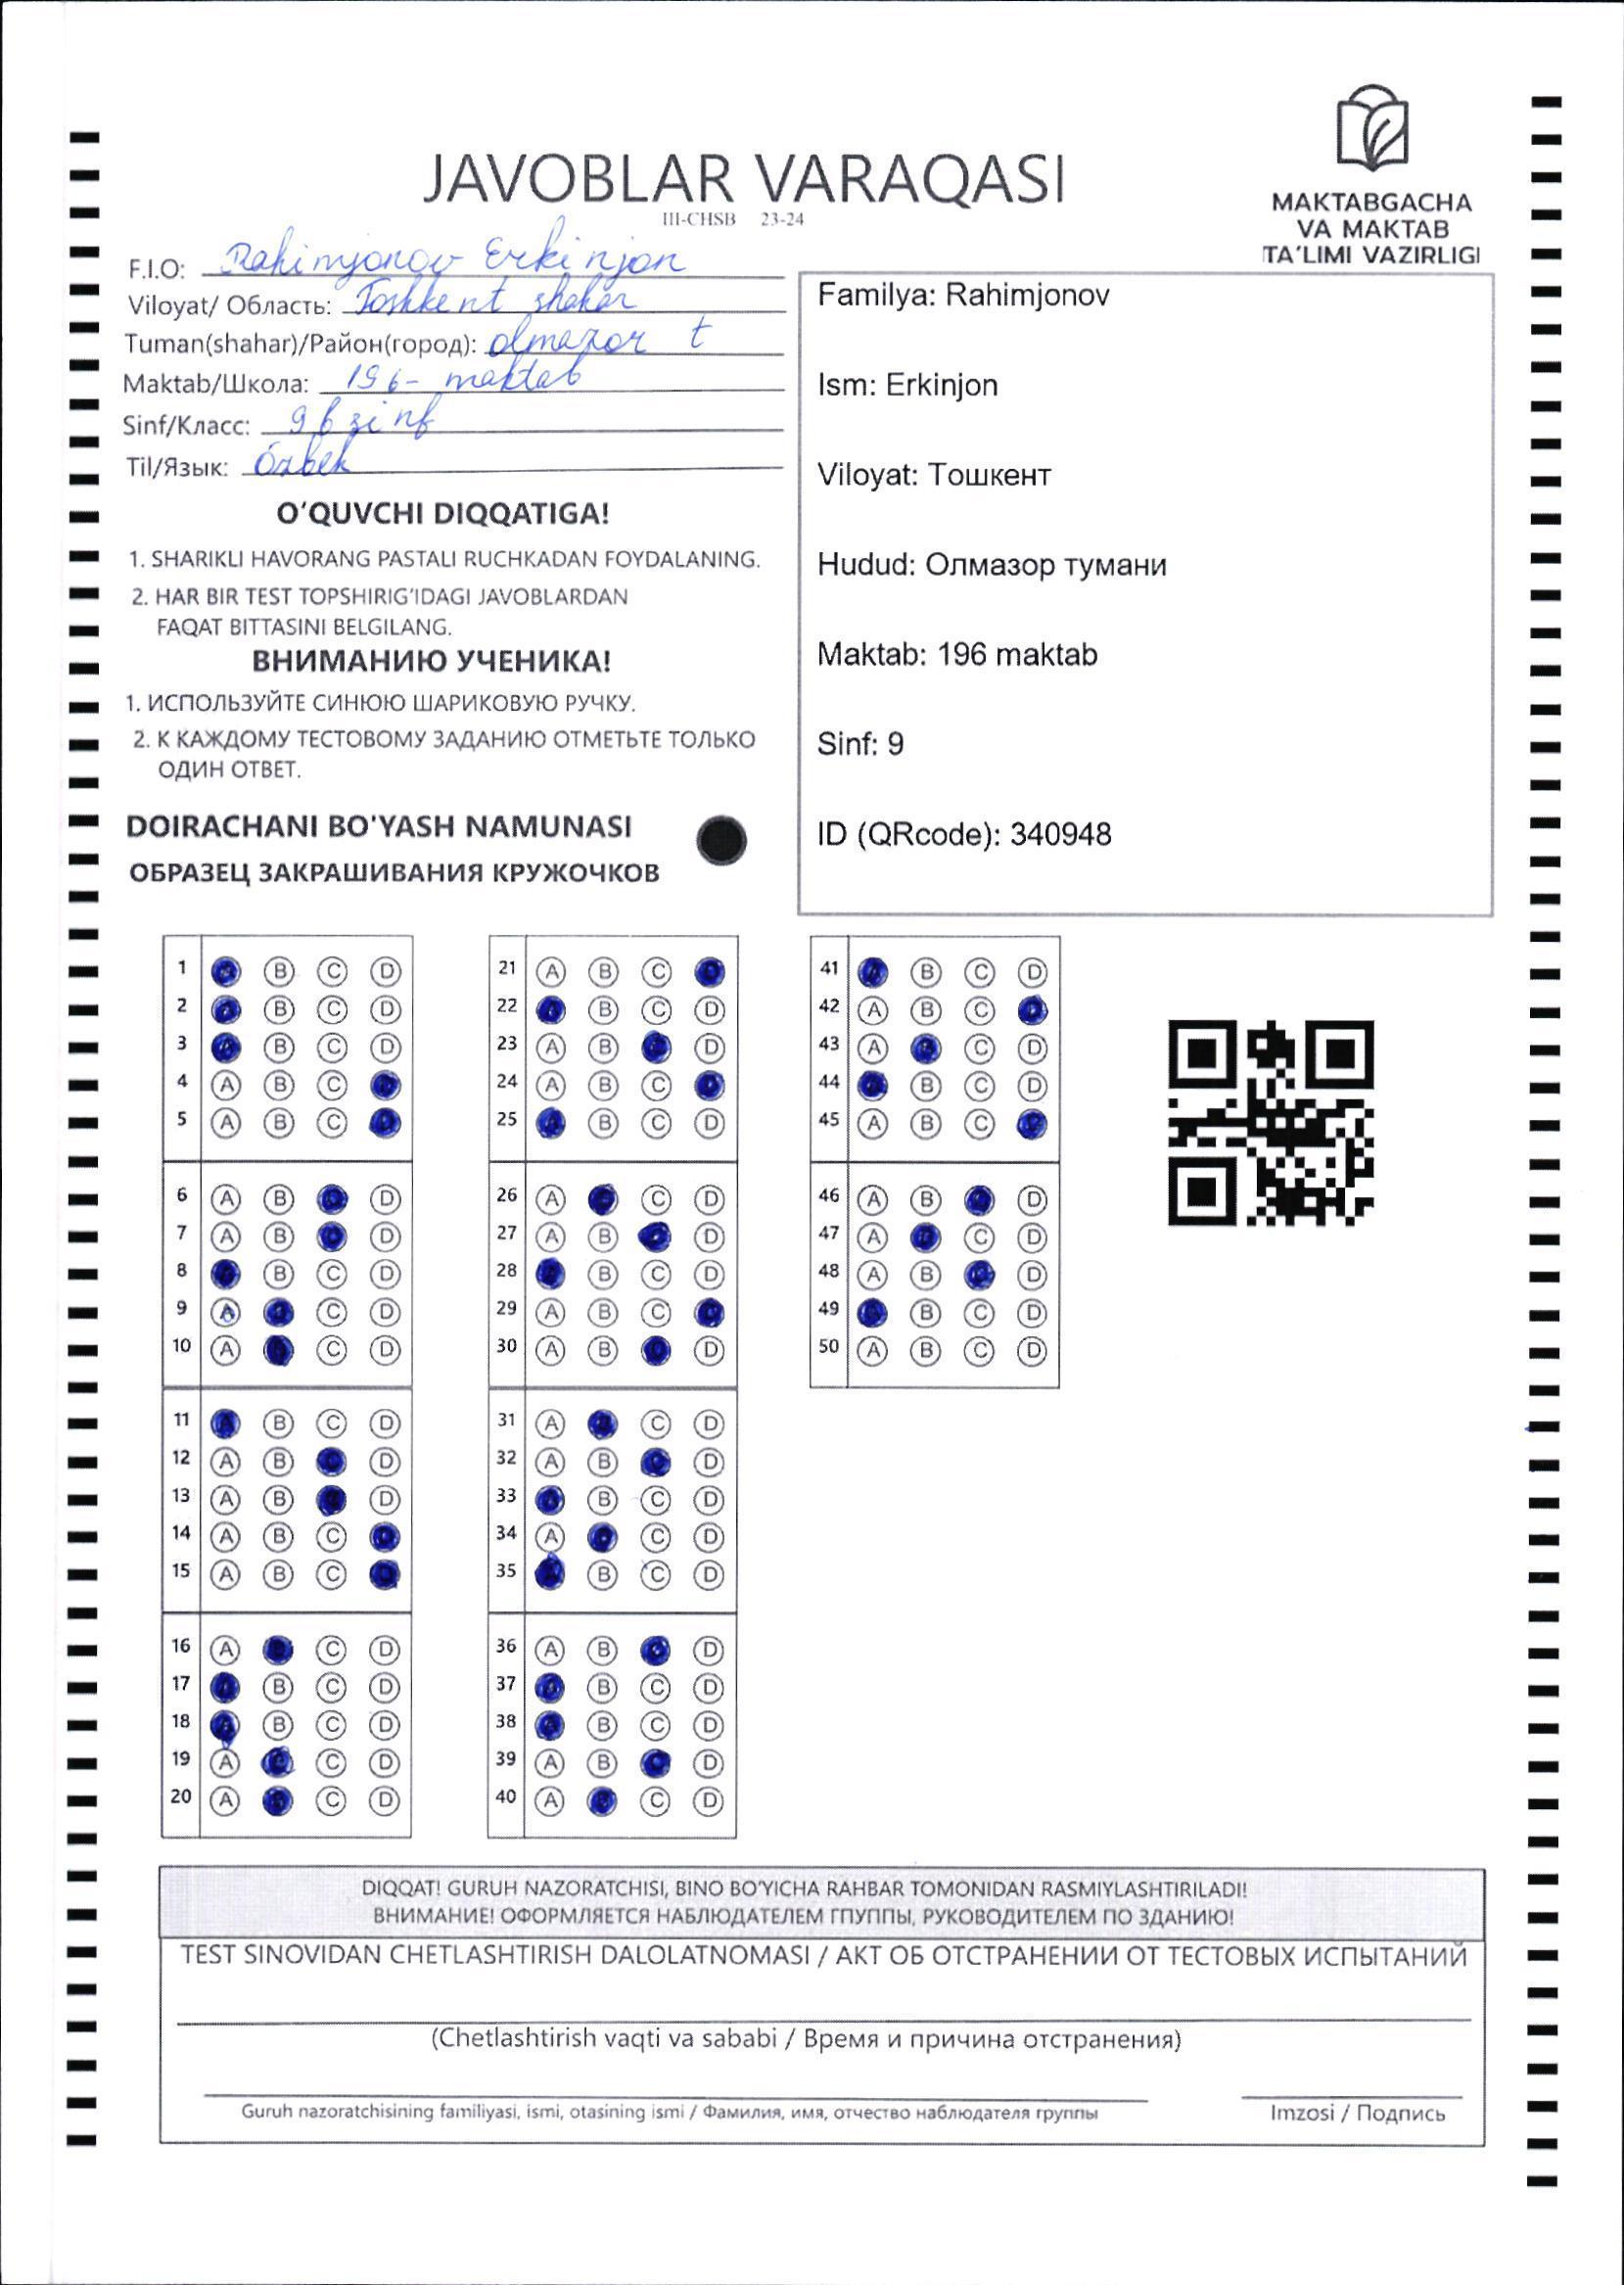 JAVOBLAR VARAQASI
III-CHSB 23-24
MAKTABGACHA
VA MAKTAB
TA'LIMI VAZIRLIGI
F.I.O: Rahimjonov Erkinjon
Viloyat/ Область: Toshkent shahar
Tuman(shahar)/Район(город): olmazor t
Maktab/Школа: 196- maktab
Sinf/Класс: 9 b sinf
Til/Язык: Ózbek
O'QUVCHI DIQQATIGA!
1. SHARIKLI HAVORANG PASTALI RUCHKADAN FOYDALANING.
2. HAR BIR TEST TOPSHIRIG'IDAGI JAVOBLARDAN
FAQAT BITTASINI BELGILANG.
ВНИМАНИЮ УЧЕНИКА!
1. ИСПОЛЬЗУЙТЕ СИНЮЮ ШАРИКОВУЮ РУЧКУ.
2. К КАЖДОМУ ТЕСТОВОМУ ЗАДАНИЮ ОТМЕТЬТЕ ТОЛЬКО
ОДИН ОТВЕТ.
DOIRACHANI BO'YASH NAMUNASI
ОБРАЗЕЦ ЗАКРАШИВАНИЯ КРУЖОЧКОВ
Familya: Rahimjonov
Ism: Erkinjon
Viloyat: Тошкент
Hudud: Олмазор тумани
Maktab: 196 maktab
Sinf: 9
ID (QRcode): 340948
1 B C D
2 B C D
3 B C D
4 A B C
5 A B C
6 A B D
7 A B D
8 B C D
9 A C D
10 A C D
11 B C D
12 A B D
13 A B D
14 A B C
15 A B C
16 A C D
17 B C D
18 B C D
19 A C D
20 A C D
21 A B C
22 B C D
23 A B D
24 A B C
25 B C D
26 A C D
27 A B D
28 B C D
29 A B C
30 A B D
31 A C D
32 A B D
33 B C D
34 A C D
35 B C D
36 A B D
37 B C D
38 B C D
39 A B D
40 A C D
41 B C D
42 A B C
43 A C D
44 B C D
45 A B C
46 A B D
47 A C D
48 A B D
49 B C D
50 A B C D
DIQQAT! GURUH NAZORATCHISI, BINO BO'YICHA RAHBAR TOMONIDAN RASMIYLASHTIRILADI!
ВНИМАНИЕ! ОФОРМЛЯЕТСЯ НАБЛЮДАТЕЛЕМ ГПУППЫ, РУКОВОДИТЕЛЕМ ПО ЗДАНИЮ!
TEST SINOVIDAN CHETLASHTIRISH DALOLATNOMASI / АКТ ОБ ОТСТРАНЕНИИ ОТ ТЕСТОВЫХ ИСПЫТАНИЙ
(Chetlashtirish vaqti va sababi / Время и причина отстранения)
Guruh nazoratchisining familiyasi, ismi, otasining ismi / Фамилия, имя, отчество наблюдателя группы
Imzosi / Подпись